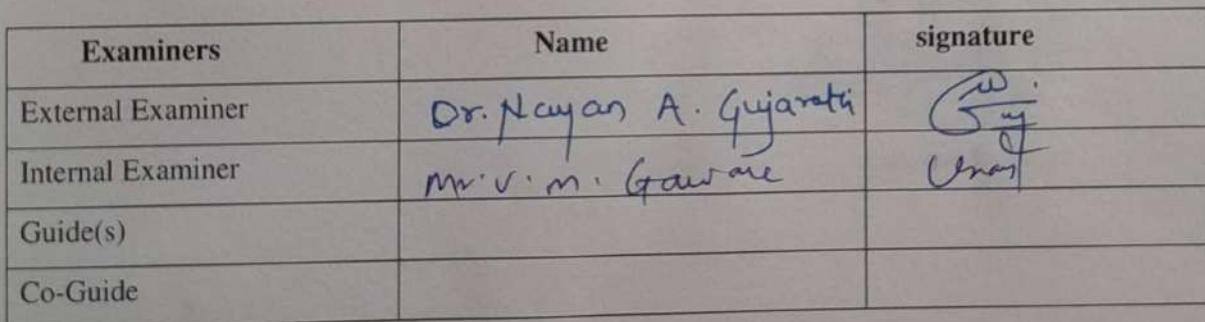 Examiners Name signature
External Examiner Dr. Nayan A. Gujarathi
Internal Examiner Mr. V. M. Gaware
Guide(s)
Co-Guide